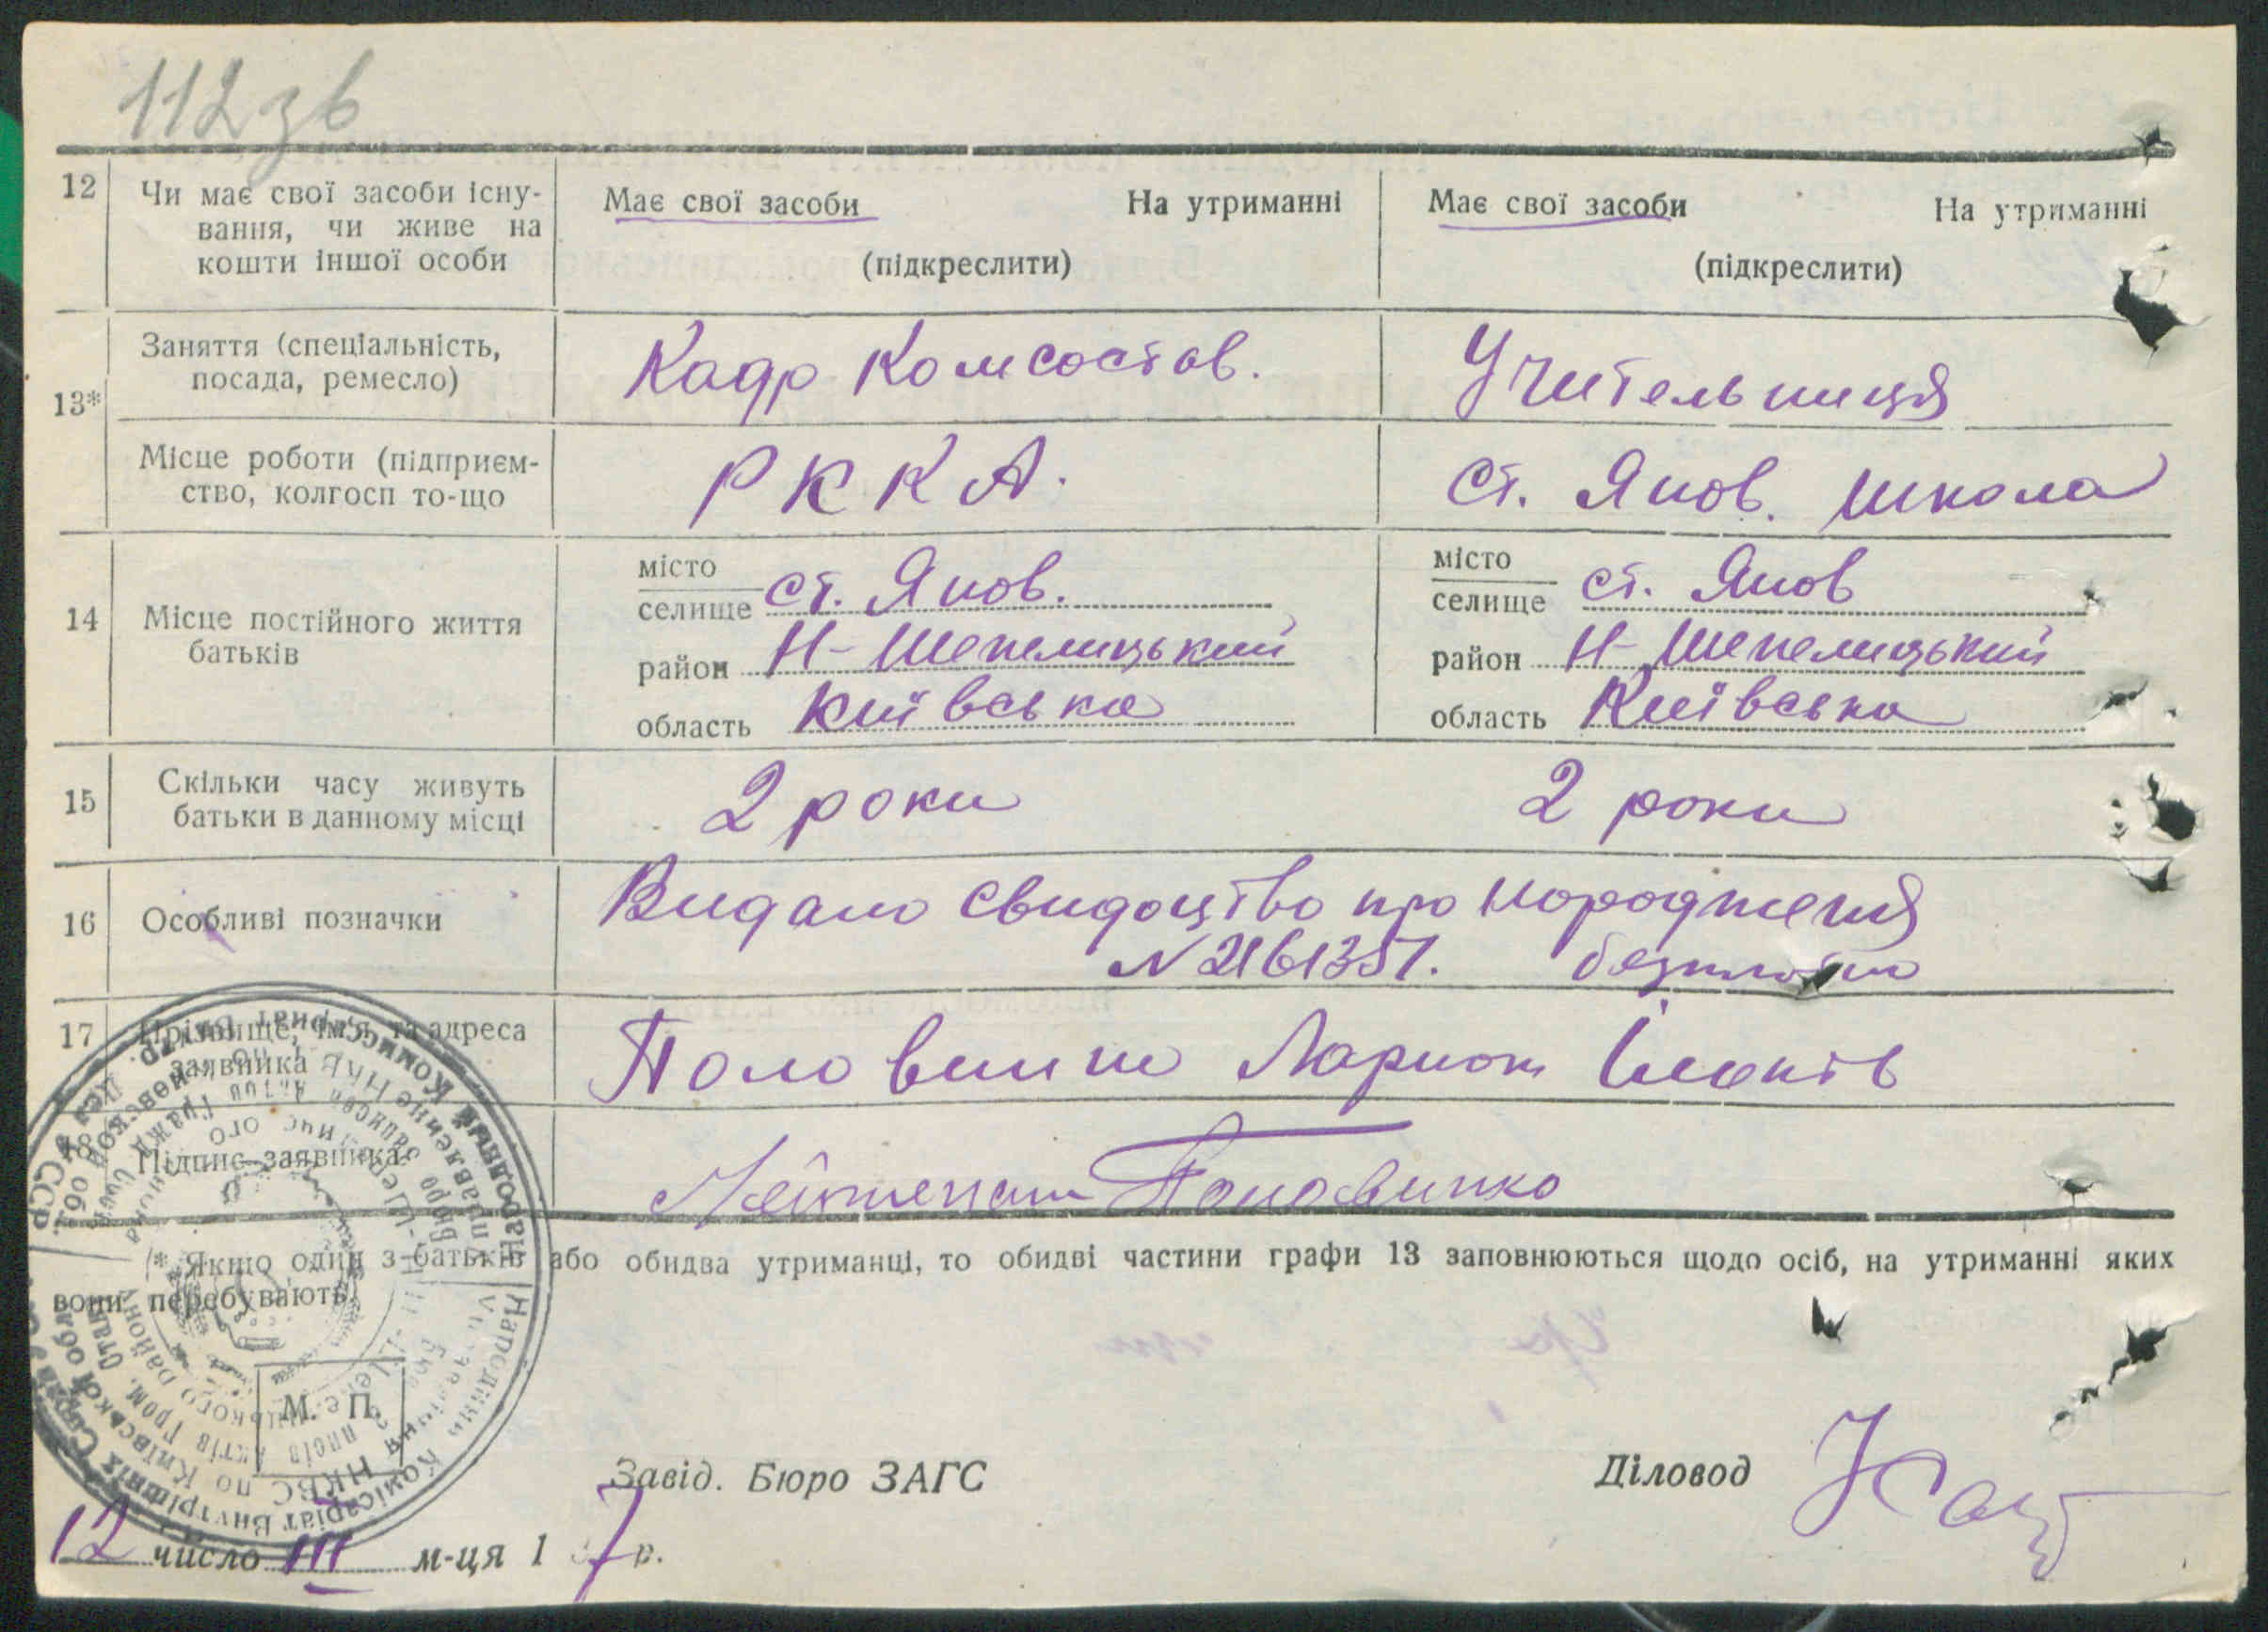 112зв
12 Чи має свої засоби існу-
вання, чи живе на
кошти іншої особи
Має свої засоби На утриманні
(підкреслити)
Має свої засоби На утриманні
(підкреслити)
13*
Заняття (спеціальність,
посада, ремесло)
Кадр Комсостав.
Учительниця
Місце роботи (підприєм-
ство, колгосп то-що
РККА.
ст. Янов. школа
14 Місце постійного життя
батьків
місто
селище ст. Янов.
район Н-Шепелицький
область Київська
місто
селище ст. Янов
район Н-Шепелицький
область Київська
15 Скільки часу живуть
батьки в данному місці
2 роки
2 роки
16 Особливі позначки
Видано свидоцтво про народження
N 2161351. безплатно
17 Прізвище, ім'я, та адреса
заявника
Половинко Ларион
18 Підпис заявника
Лейтенант Половинко
(* Якщо один з батьків або обидва утриманці, то обидві частини графи 13 заповнюються щодо осіб, на утриманні яких
вони перебувають.
М. П.
Завід. Бюро ЗАГС
Діловод
12 число III м-ця 1 7 р.